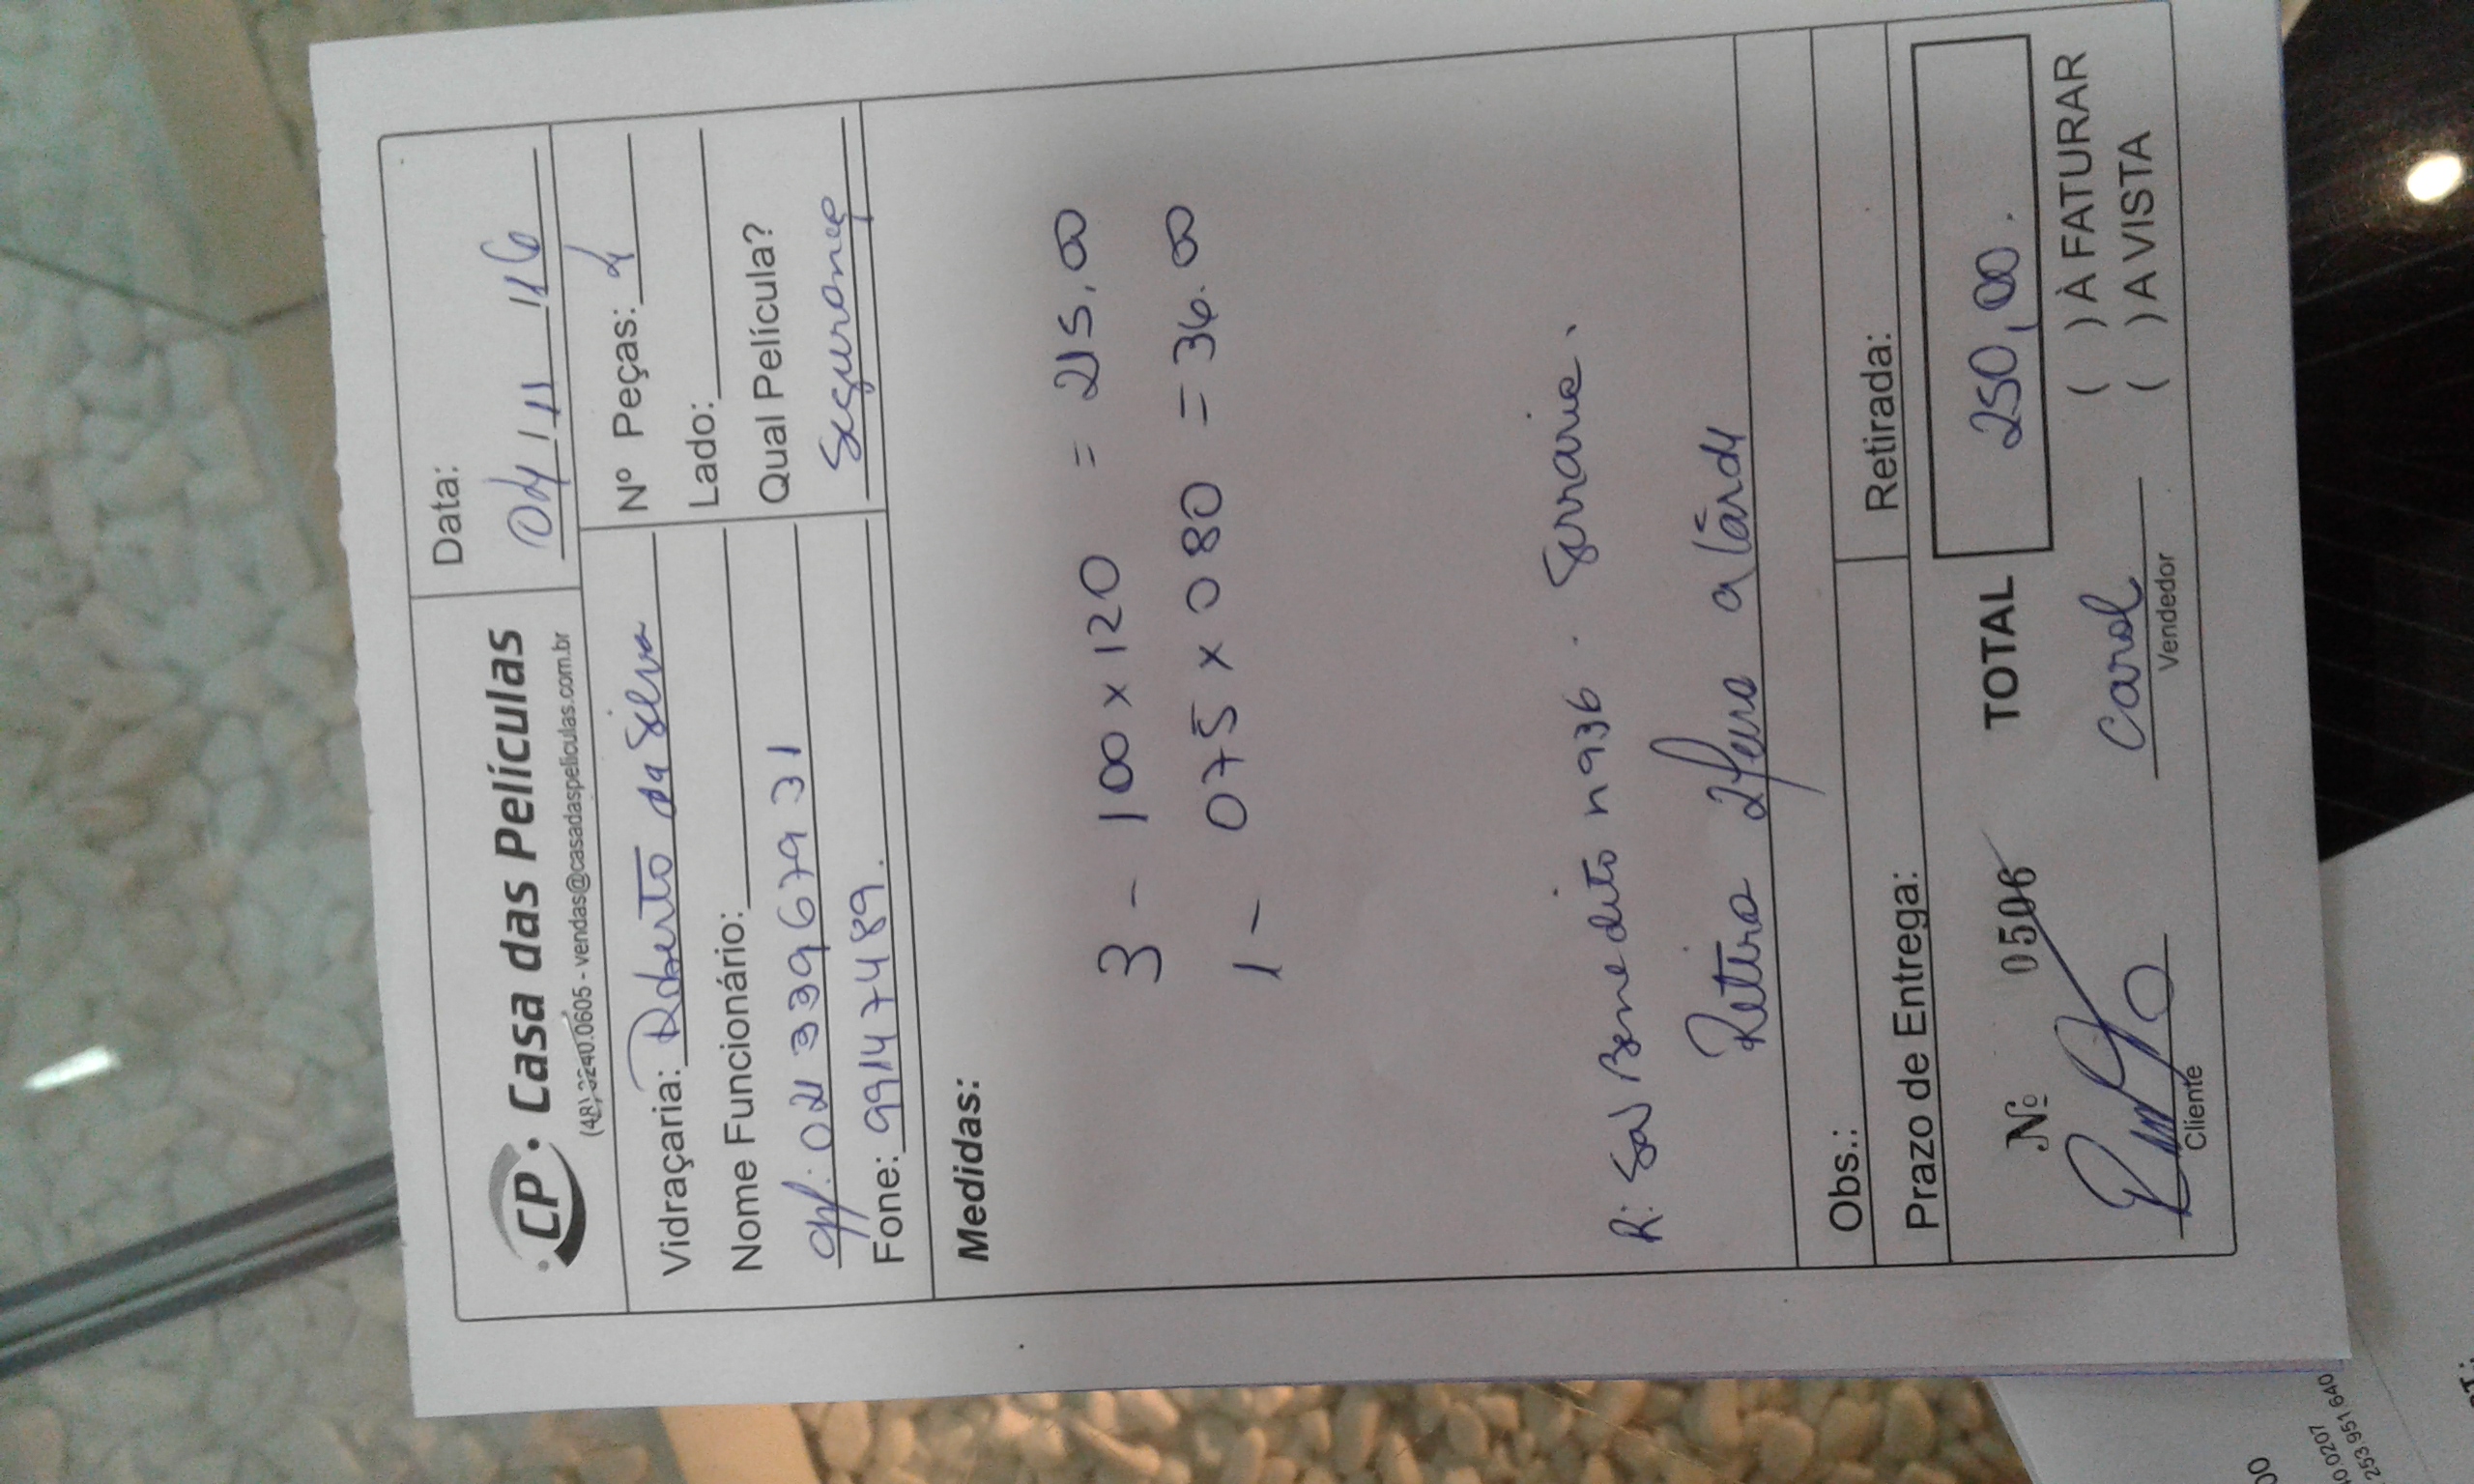 CP. Casa das Películas
(48) 3240.0605 - vendas@casadaspeliculas.com.br
Data:
04/11/16
Vidraçaria: Roberto da Silva
Nº Peças: 4
Nome Funcionário:
Lado:
cpf: 021 339 679 31
Qual Película?
Fone: 991474489.
Segurança
Medidas:
3 - 100 x 120 = 215,00
1 - 075 x 080 = 36.00
R: São Benedito n936 . Serraria.
Retira 2feira a tarde
Obs.:
Prazo de Entrega:
Retirada:
Nº 0506
TOTAL 250,00.
( ) À FATURAR
( ) A VISTA
Carol
Cliente
Vendedor
00
0.0207
253.951.640